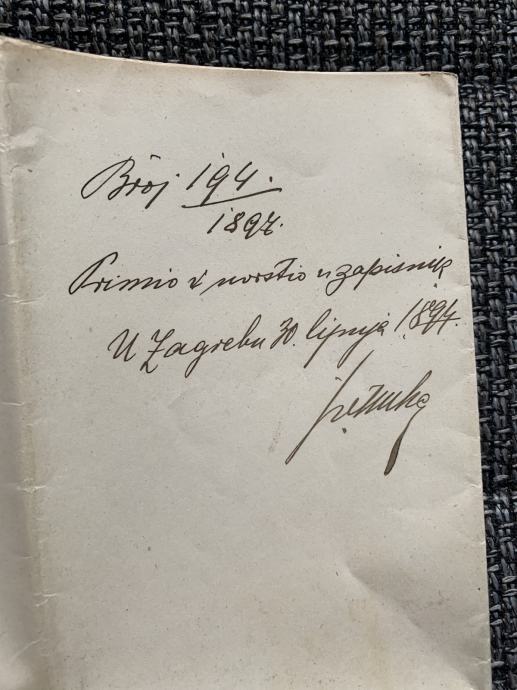 Broj 194.
1897.
Primio i uvrstio u zapisnik
U Zagrebu 30. lipnja 1897.